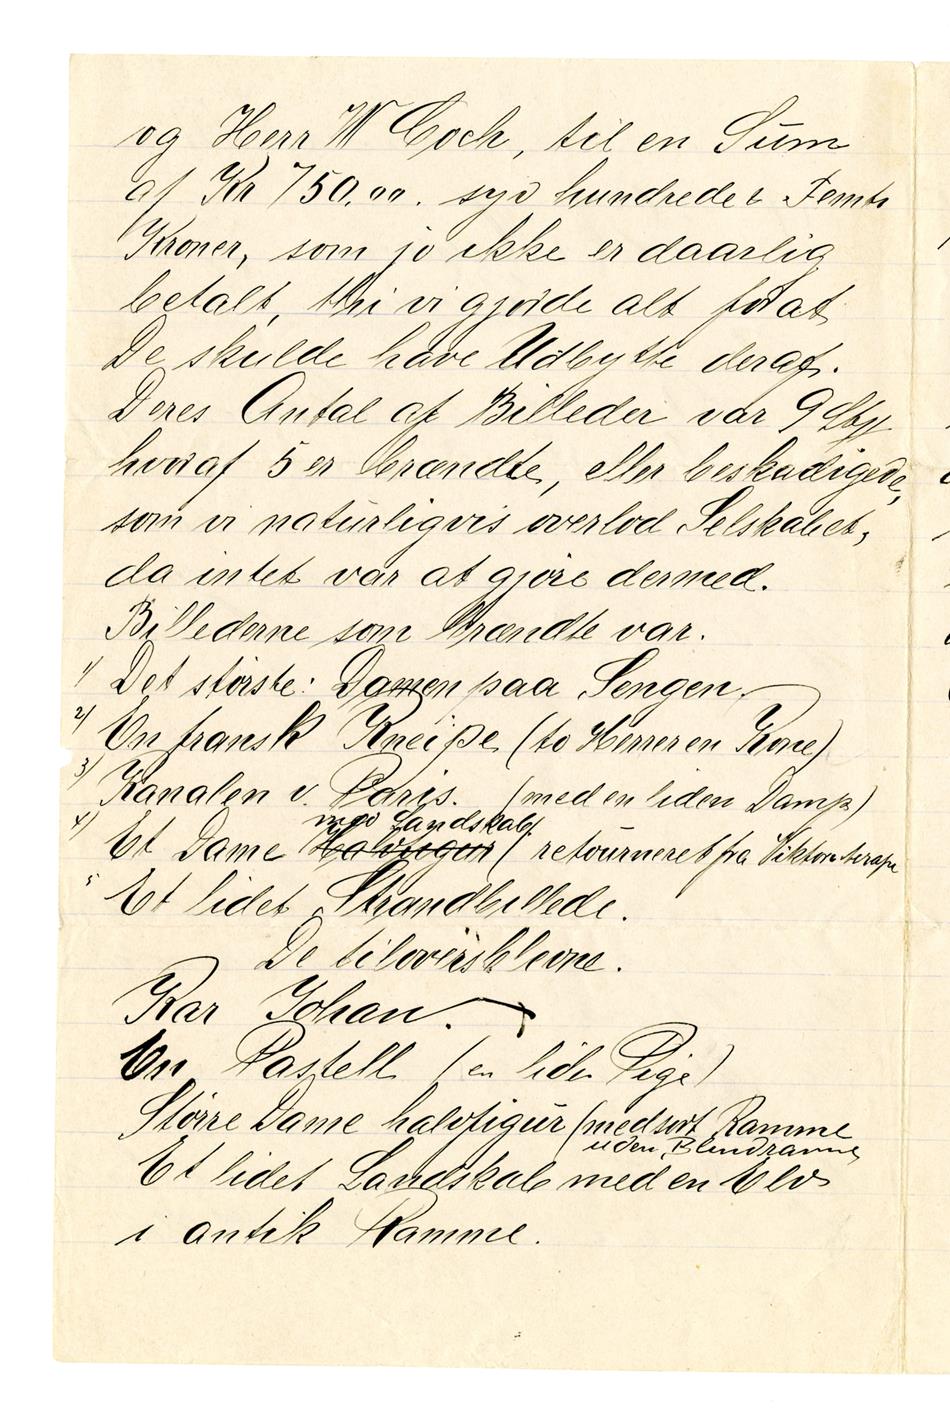 og Herr W Coch, til en Sum
af Kr 750,00. syv hundrede & Femti
Kroner, som jo ikke er daarlig
betalt, thi vi gjorde alt for at
De skulde have Udbytte deraf.
Deres Antal af Billeder var 9 Sty
hvoraf 5 er brændte, eller beskadigede,
som vi naturligvis overlod Selskabet,
da intet var at gjøre dermed.
Billederne som brændte var.
1) Det største: Damen paa Sengen.
2) En fransk Kneipe (to Herrer en Kone)
3) Kanalen v. Paris. (med en liden Damp)
med Landskab
4) Et Dame Halvfigur (retourneret fra
5 Et lidet Strandbillede.
De tiloversblevne.
Kar Johan.
En Pastell (en liden Pige)
Større Dame halvfigur (med sort Ramme
uden Blendramme
Et lidet Landskab med en Elv
i antik Ramme.